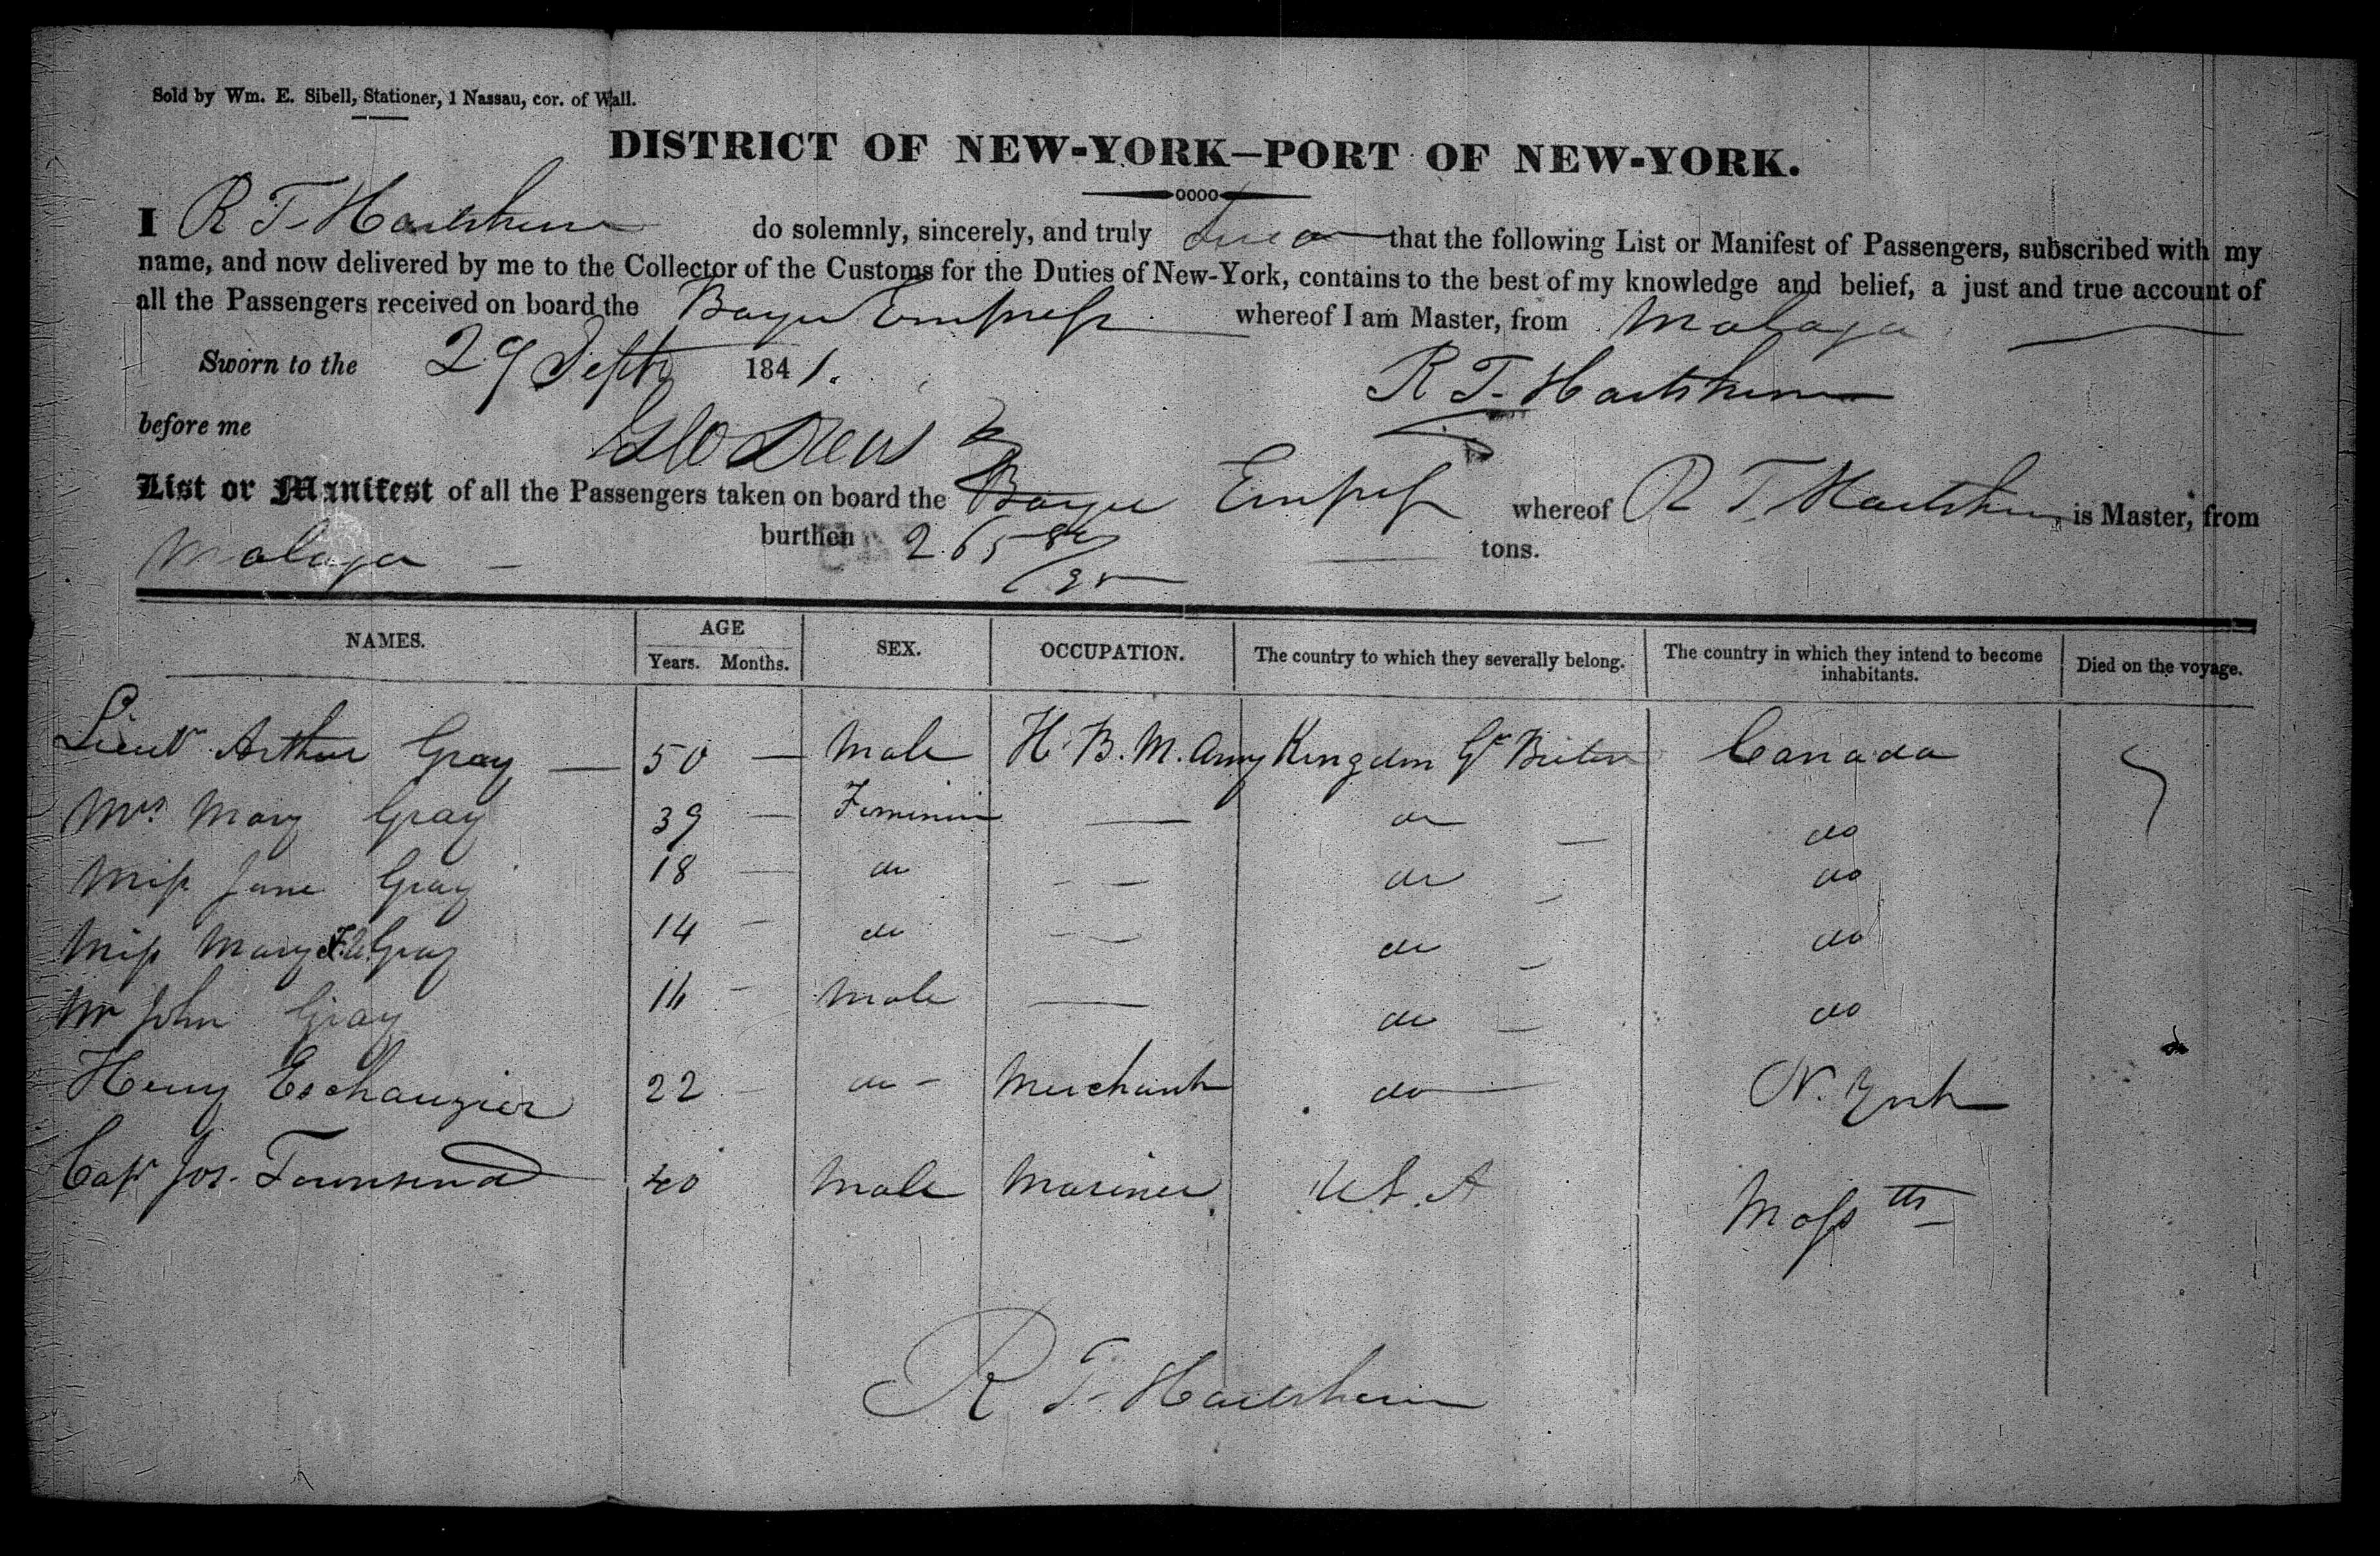 Sold by Wm. E. Sibell, Stationer, 1 Nassau, cor. of Wall.
DISTRICT OF NEW-YORK—PORT OF NEW-YORK.
I R T. Hartshorn do solemnly, sincerely, and truly swear that the following List or Manifest of Passengers, subscribed with my
name, and now delivered by me to the Collector of the Customs for the Duties of New-York, contains to the best of my knowledge and belief, a just and true account of
all the Passengers received on board the Barque Empress whereof I am Master, from Malaga
Sworn to the 29 Sept 1841.
R T. Hartshorn
before me
Geo Drew
List or Manifest of all the Passengers taken on board the Barque Empress whereof R T. Hartshorn is Master, from
Malaga burthen 265 tons.
NAMES. AGE Years. Months. SEX. OCCUPATION. The country to which they severally belong. The country in which they intend to become inhabitants. Died on the voyage.
Lieut Arthur Gray — 50 — Male H. B. M. Army Kingdom Gt Briten Canada
Mrs Mary Gray 39 — Feminin — do — do
Miss Jane Gray 18 — do — — do — do
Miss Mary Gray 14 — do — do — do
Mr John Gray 16 — Male — do — do
Henry Eschauzier 22 — do — Merchant do — N. York
Capt Jos. Townsend 40 Male Mariner U S. A Massts
R T. Hartshorn